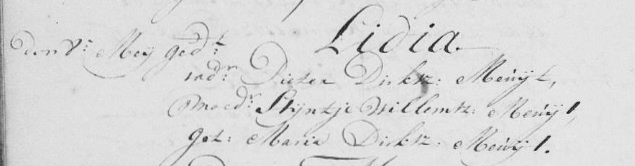 Lidia.
Den 8: Meij ged:t
vadr: Pieter Dirksz: Meuijt,
moedr: Stijntje Willemsz: Meuijt,
get: Maria Dirksz: Meuijt.